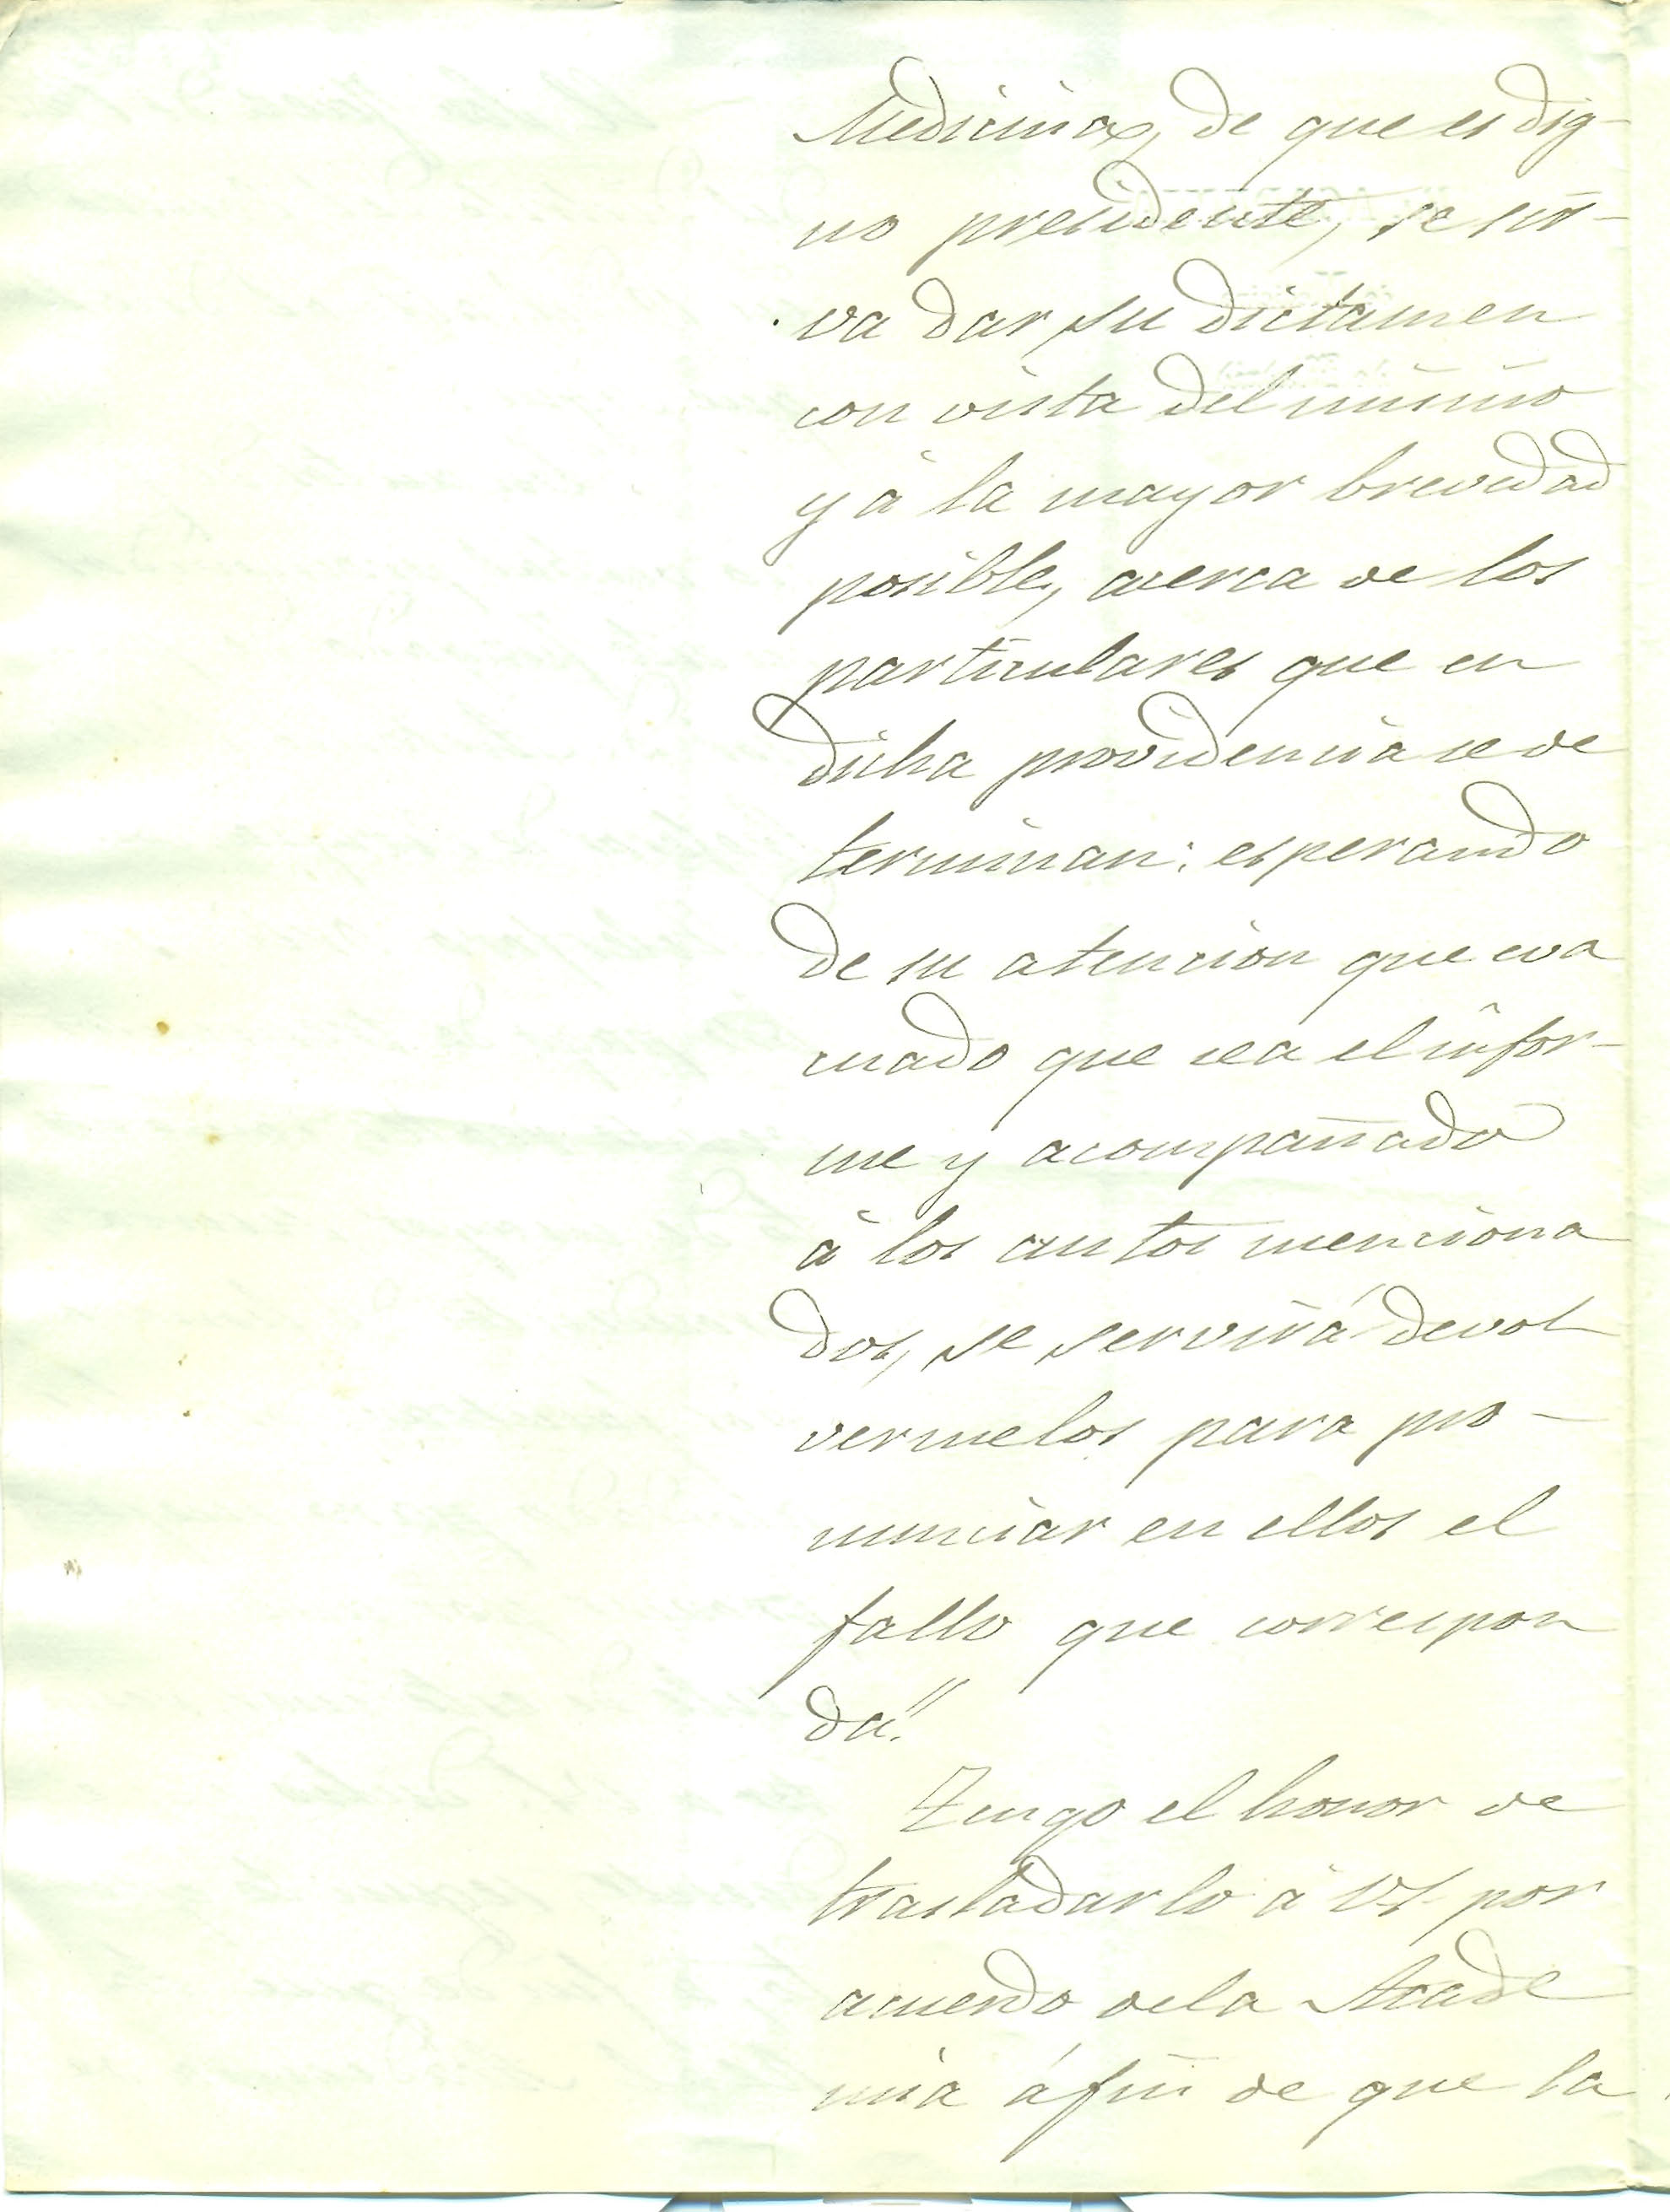 Medicina, de que es dig-
no presidente, se sir-
va dar su dictamen
con vista del mismo
y á la mayor brevedad
posible, acerca de los
particulares que en
dicha providencia se de
terminan: esperando
de su atencion que eva
cuado que sea el infor-
me y acompañado
á los autos menciona
dos, se servirá devol
vermelos para pro-
nunciar en ellos el
fallo que correspon
da."
Tengo el honor de
trasladarlo á VS. por
acuerdo de la Acade
mia á fin de que la